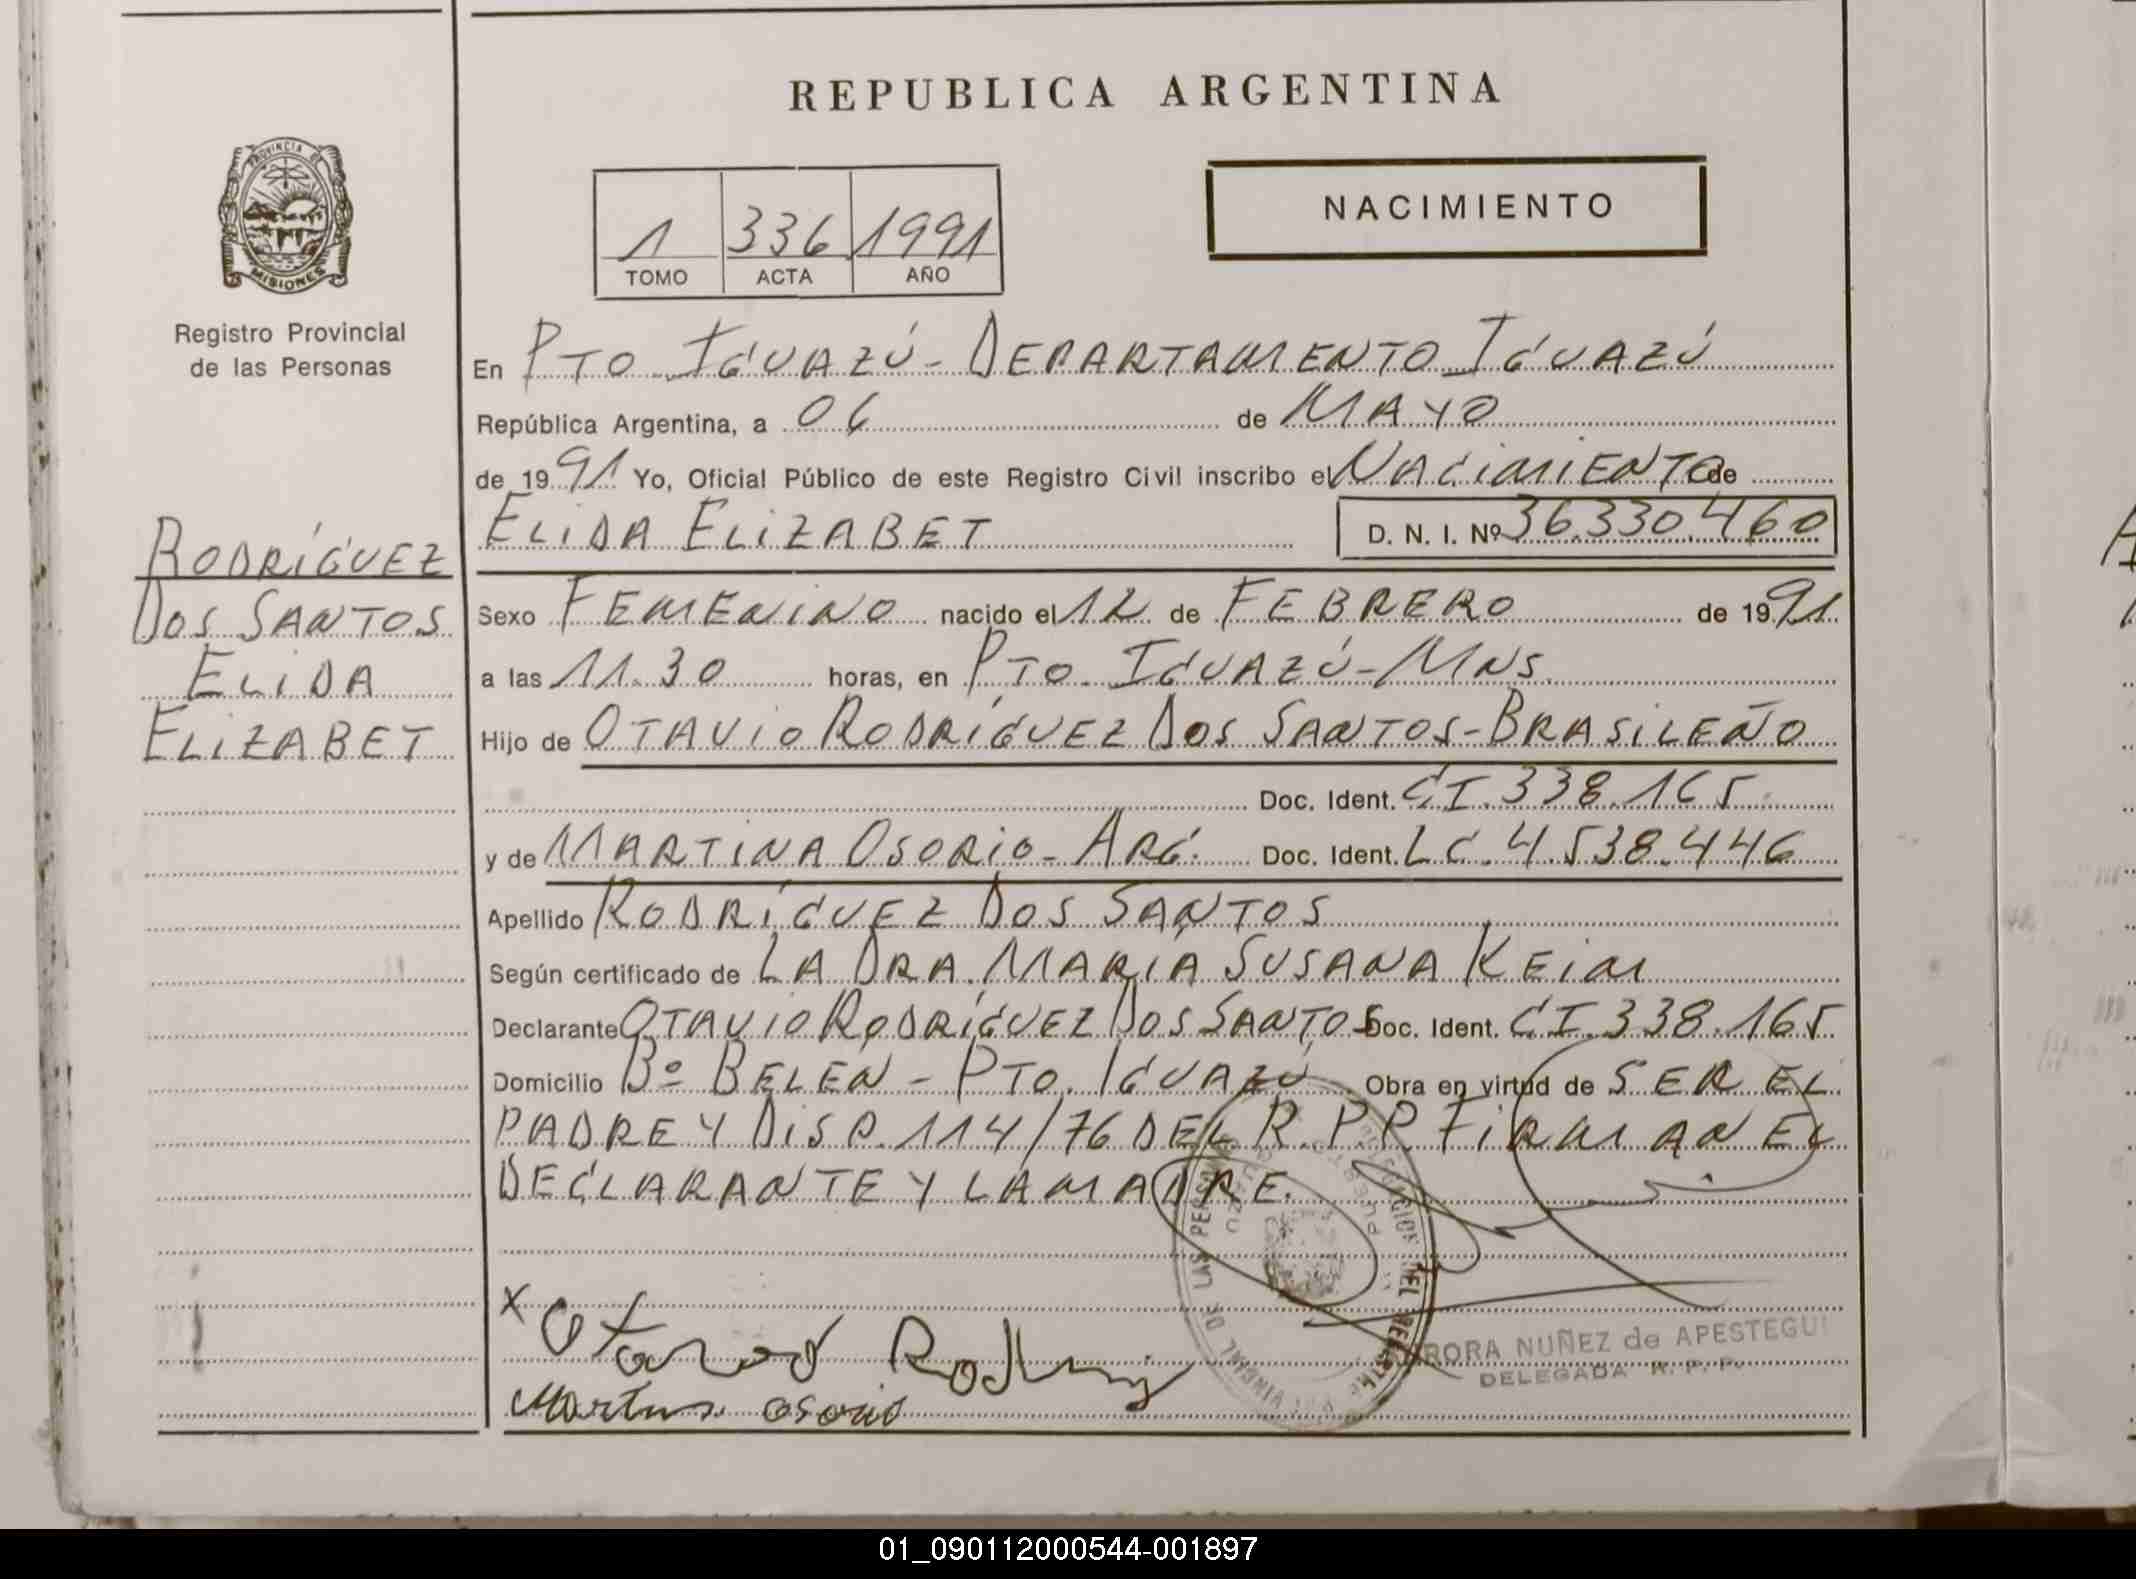 REPUBLICA ARGENTINA
PROVINCIA DE
MISIONES
Registro Provincial
de las Personas
1 336 1991
TOMO ACTA AÑO
NACIMIENTO
En PTO. IGUAZÚ - DEPARTAMENTO IGUAZÚ
República Argentina, a 06 de MAYO
de 1991 Yo, Oficial Público de este Registro Civil inscribo el NACIMIENTO de
ELIDA ELIZABET D. N. I. Nº 36.330.460
RODRÍGUEZ
DOS SANTOS
ELIDA
ELIZABET
Sexo FEMENINO nacido el 12 de FEBRERO de 1991
a las 11.30 horas, en PTO. IGUAZÚ - MNS.
Hijo de OTAVIO RODRÍGUEZ DOS SANTOS - BRASILEÑO
Doc. Ident. CI. 338.165
y de MARTINA OSORIO - ARG. Doc. Ident. LC. 4.538.446
Apellido RODRÍGUEZ DOS SANTOS
Según certificado de LA DRA. MARÍA SUSANA KEIM
Declarante OTAVIO RODRÍGUEZ DOS SANTOS Doc. Ident. CI. 338.165
Domicilio Bº BELEN - PTO. IGUAZÚ Obra en virtud de SER EL
PADRE Y DISP. 114/76 DEL R.P.P. FIRMAN EL
DECLARANTE Y LA MADRE.
x
Martina osorio
DE LAS PERSONAS
RORA NUÑEZ de APESTEGUI
DELEGADA R. P. P.
01_090112000544-001897